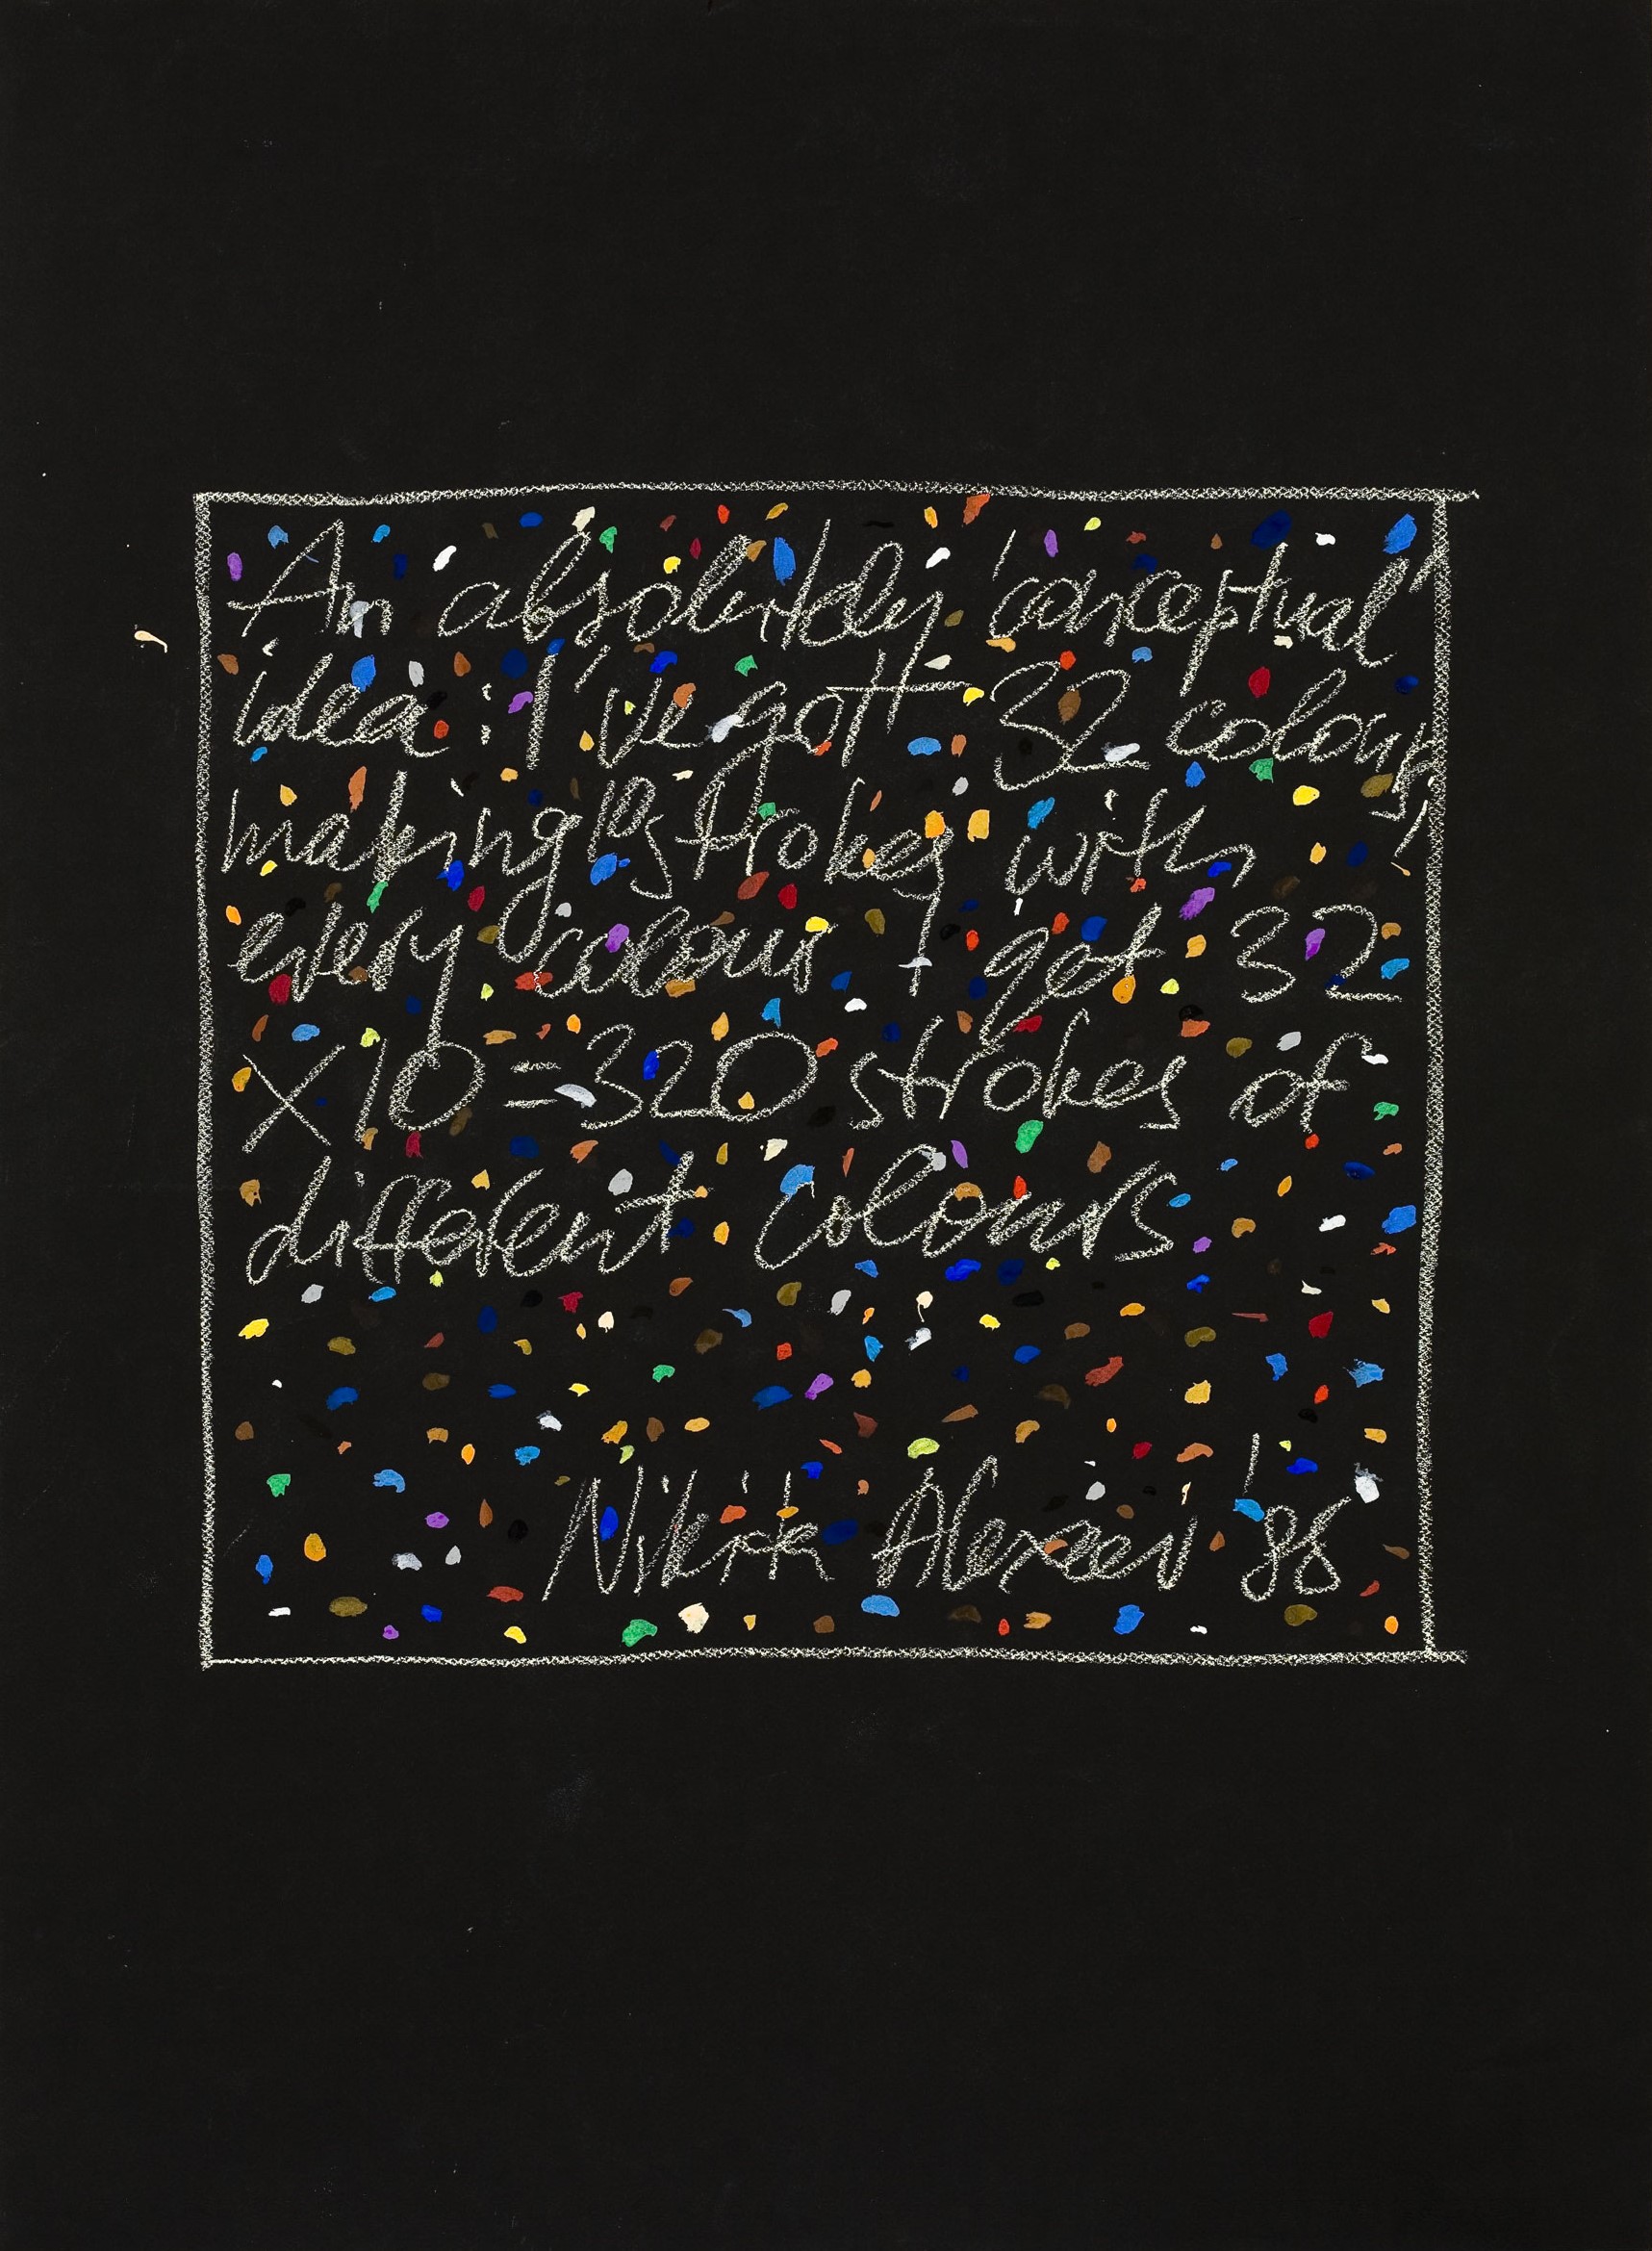 An absolutely 'conceptual'
idea: I've gott 32 colours,
making 10 strokes with
every colour I get 32
x10=320 strokes of
different colours
Nikita Alexeev '86